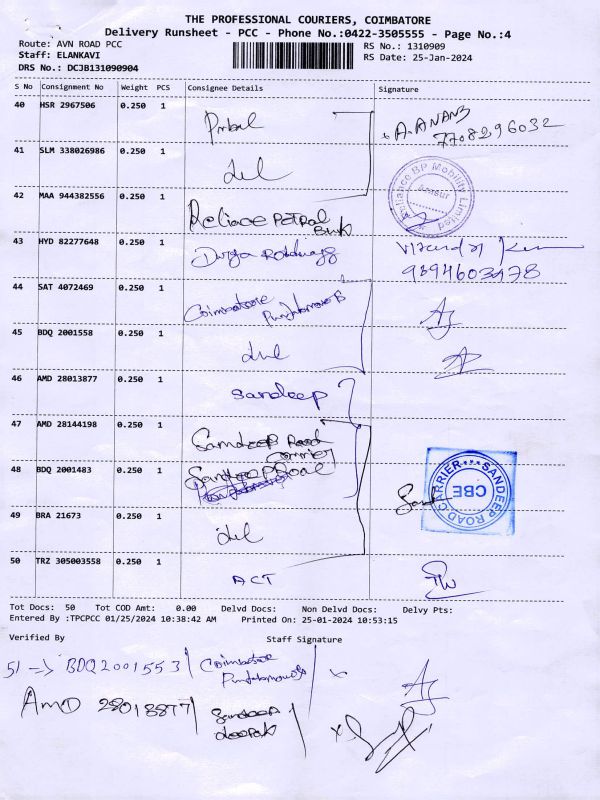 THE PROFESSIONAL COURIERS, COIMBATORE
Delivery Runsheet - PCC - Phone No.:0422-3505555 - Page No.:4
Route: AVN ROAD PCC
RS No.: 1310909
Staff: ELANKAVI
RS Date: 25-Jan-2024
DRS No.: DCJB131090904
S No Consignment No Weight PCS Consignee Details Signature
40 HSR 2967506 0.250 1 A. ANAND
7708296032
41 SLM 338026986 0.250 1
Reliance BP Mobility Limited
42 MAA 944382556 0.250 1 Reliace PETROL
Bunk
43 HYD 82277648 0.250 1 Durga Roadways
9894603478
44 SAT 4072469 0.250 1 Coimbatore
45 BDQ 2001558 0.250 1
46 AMD 28013877 0.250 1 Sandeep
47 AMD 28144198 0.250 1 Samdeep Road
Carrier
48 BDQ 2001483 0.250 1 Sandeep Road
SANDEEP ROAD CARRIER
CBE
49 BRA 21673 0.250 1
50 TRZ 305003558 0.250 1 ACT
Tot Docs: 50 Tot COD Amt: 0.00 Delvd Docs: Non Delvd Docs: Delvy Pts:
Entered By :TPCPCC 01/25/2024 10:38:42 AM Printed On: 25-01-2024 10:53:15
Verified By Staff Signature
51 => BDQ2001553 Coimbatore
AMD 28013877 Sandeep
deepak